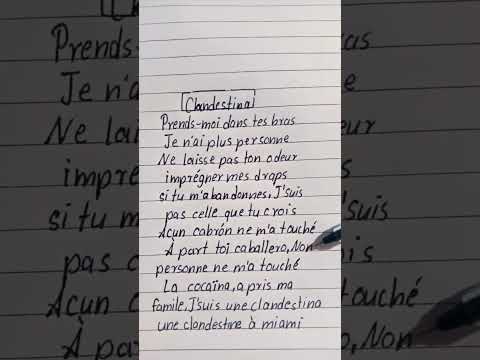 Clandestina
Prends-moi dans tes bras
Je n'ai plus personne
Ne laisse pas ton odeur
imprégner mes draps
si tu m'abandonnes, J'suis
pas celle que tu crois
Açun cabrón ne m'a touché
À part toi caballero, Non
personne ne m'a touché
La cocaïna, a pris ma
famile, J'suis une clandestina
une clandestine à miami